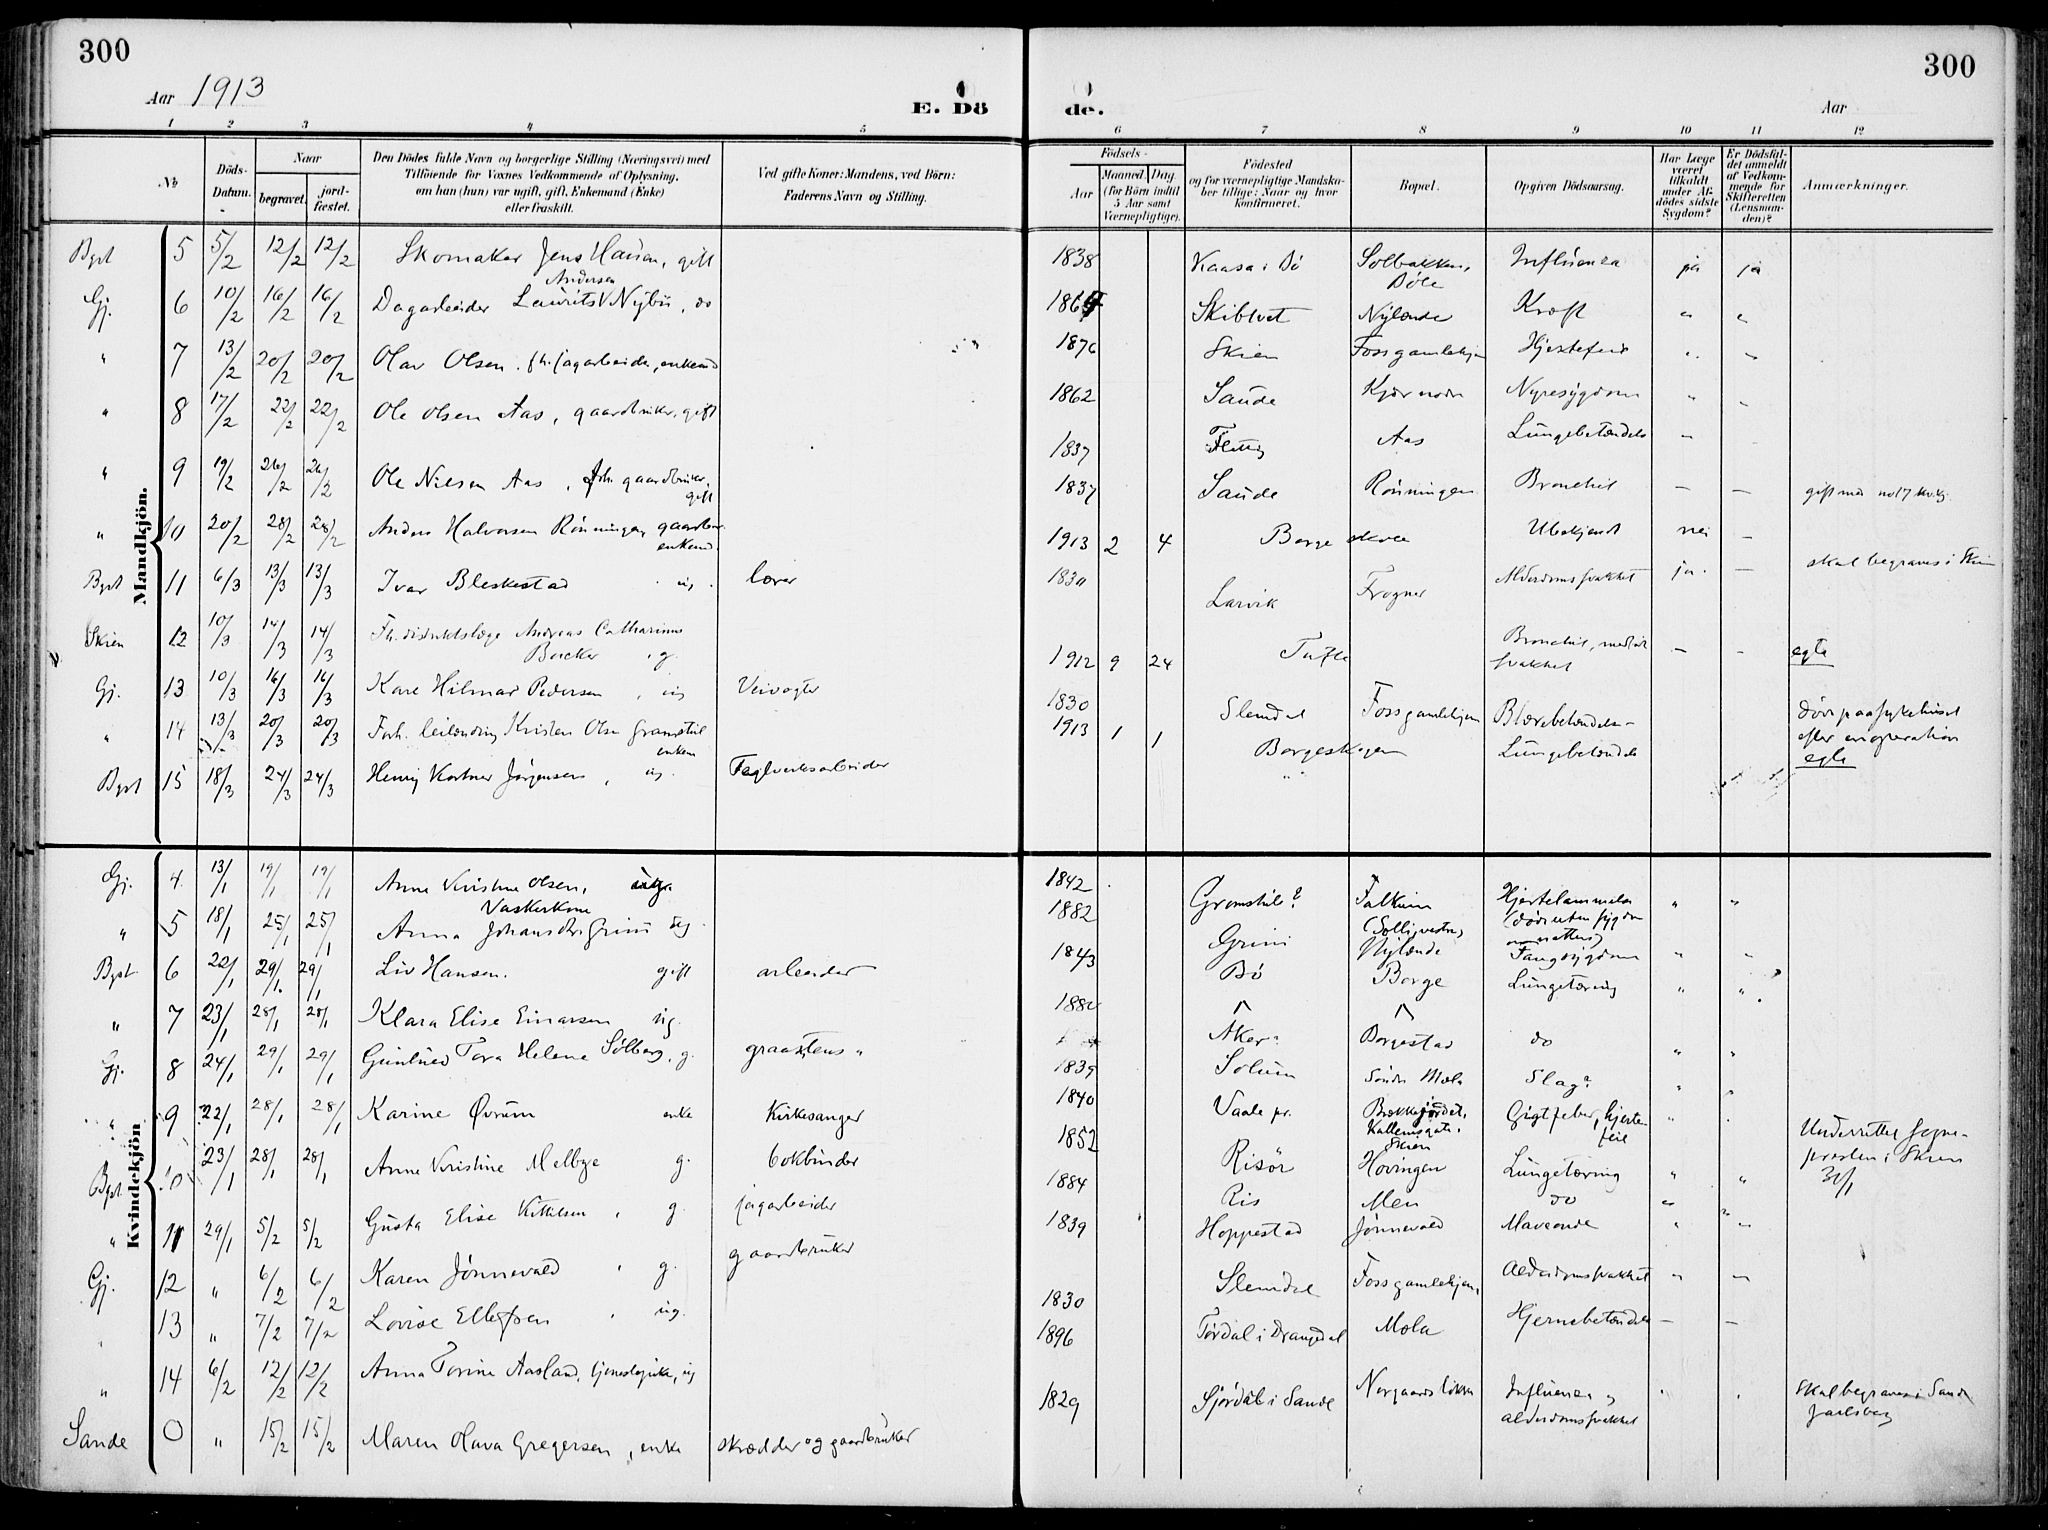 300
300
Aar 1913
E. Dö
de.
Aar
1 2 3 4 5
6 7 8 9 10 11 12
No
Döds-
Datum.
Naar
begravet.
jord-
fæstet.
Den Dödes fulde Navn og borgerlige Stilling (Næringsvei) med
Tilföiende for Voxnes Vedkommende af Oplysning,
om han (hun) var ugift, gift, Enkemand (Enke)
eller fraskilt.
Ved gifte Koner: Mandens, ved Börn:
Faderens Navn og Stilling.
Födsels-
Aar
Maaned. Dag.
(for Börn indtil
5 Aar samt
Værnepligtige).
Födested
og for værnepligtige Mandska-
ber tillige: Naar og hvor
konfirmeret.
Bopæl.
Opgiven Dödsaarsag.
Har Læge
været
tilkaldt
under Af-
dödes sidste
Sygdom?
Er Dödsfal-
det anmeldt
af Vedkom-
mende for
Skifteretten
(Lensman-
den)?
Anmærkninger.
Mandkjön.
5 5/2 12/2 12/2 Skomaker Jens Hansen, gift
1838 Kaasa i Bø Solbakken, Influenza ja ja
Bøle
Andersen
Gj. 6 10/2 16/2 16/2 Dagarbeider Laurits Nybu, do
Skibtvet Nylænde Kræft
" 7 13/2 20/2 20/2 Olav Olsen, enkem
1876 Skien Fossgamlehjem Hjertefeil
" 8 17/2 22/2 22/2 Ole Olsen Aas, gaardbruker, gift
1862 Saude Nyresygdom
1837 Aas Lungebetændels
" 9 19/2 26/2 26/2 Ole Nilsen Aas, fh. gaardbruker,
gift
1837 Saude Rönningen Bronchit — — gift med no 17
" 10 20/2 28/2 28/2 Anders Halvorsen Rönningen gaardbr.
enkem.
1913 2 4 Borge skole Ubekjendt nei —
11 6/3 13/3 13/3 Ivar Bleskestad ug. lærer
Larvik Frogner Alderdomssvakhet ja — skal begraves i Skien
Skien 12 10/3 14/3 14/3 Fh. distriktslæge Andreas Catharinus
g.
1912 9 24 Tufte Bronchit, medfödt
svakhet — — egte
Gj. 13 10/3 16/3 16/3 Kare Hilmar Pedersen, ug Veivogter
1830 Slemdal Fossgamlehjem Blærebetændelse
" 14 13/3 20/3 20/3 Forh. leilending Kristen Olsen Gromstul
enkem
1913 1 1 Borgeskogen Lungebetændels
död paa sykehuset
efter en operation
egte
15 18/3 24/3 24/3 Henry Jørgensen, ug. Teglverksarbeider
Kvindekjön
Gj. 4 13/1 19/1 19/1 Anne Kristine Olsen, ug.
Vaskerkone
1842 Gromstul? Falkum Hjertelammelse
" 5 18/1 25/1 25/1 Anna Johansdtr. Grini ug.
1882 Grini Nylænde
6 22/1 29/1 29/1 Liv Hansen. gift arbeider
1843 Bø Borge Lungetæring
" 7 23/1 28/1 28/1 Klara Elise Einarsen ug.
Aker? Borgestad do
Gj. 8 24/1 29/1 29/1 Gunhild Tora Helene Solberg, g. graastens "
1839 Solum Söndr Mæla Slag?
" 9 22/1 28/1 28/1 Karine Øvrum enke Kirkesanger
1840 Vaale pr. Brækkejordet, Gigtfeber, hjerte-
feil
Skien
10 23/1 28/1 28/1 Anne Kristine Melbye g. bokbinder
1852 Risör Hovingen Lungetæring
Underrettet sogne-
presten i Skien
30/1
" 11 29/1 5/2 5/2 Gusta Elise Kittilsen g. jagarbeider
1884 Ris Men do
Gj. 12 " 6/2 6/2 Karen Jönnevald g. gaardbruker
1839 Hoppestad Jönnevald Maveonde
13 " 7/2 7/2 Lovise Ellefsen ug.
1830 Slemdal Fossgamlehjem Alderdomssvakhet
" 14 6/2 12/2 12/2 Anna Torine Aasland, tjenestepike, ug
1896 Tørdal i Drangedal Mæla Hjernebetændels
Sande 0 " 15/2 15/2 Maren Hava Gregersen, enke skrædder og gaardbruker
1829 i Sande Influenza,
alderdomssvakhet
Skal begraves i Sande
Jarlsberg